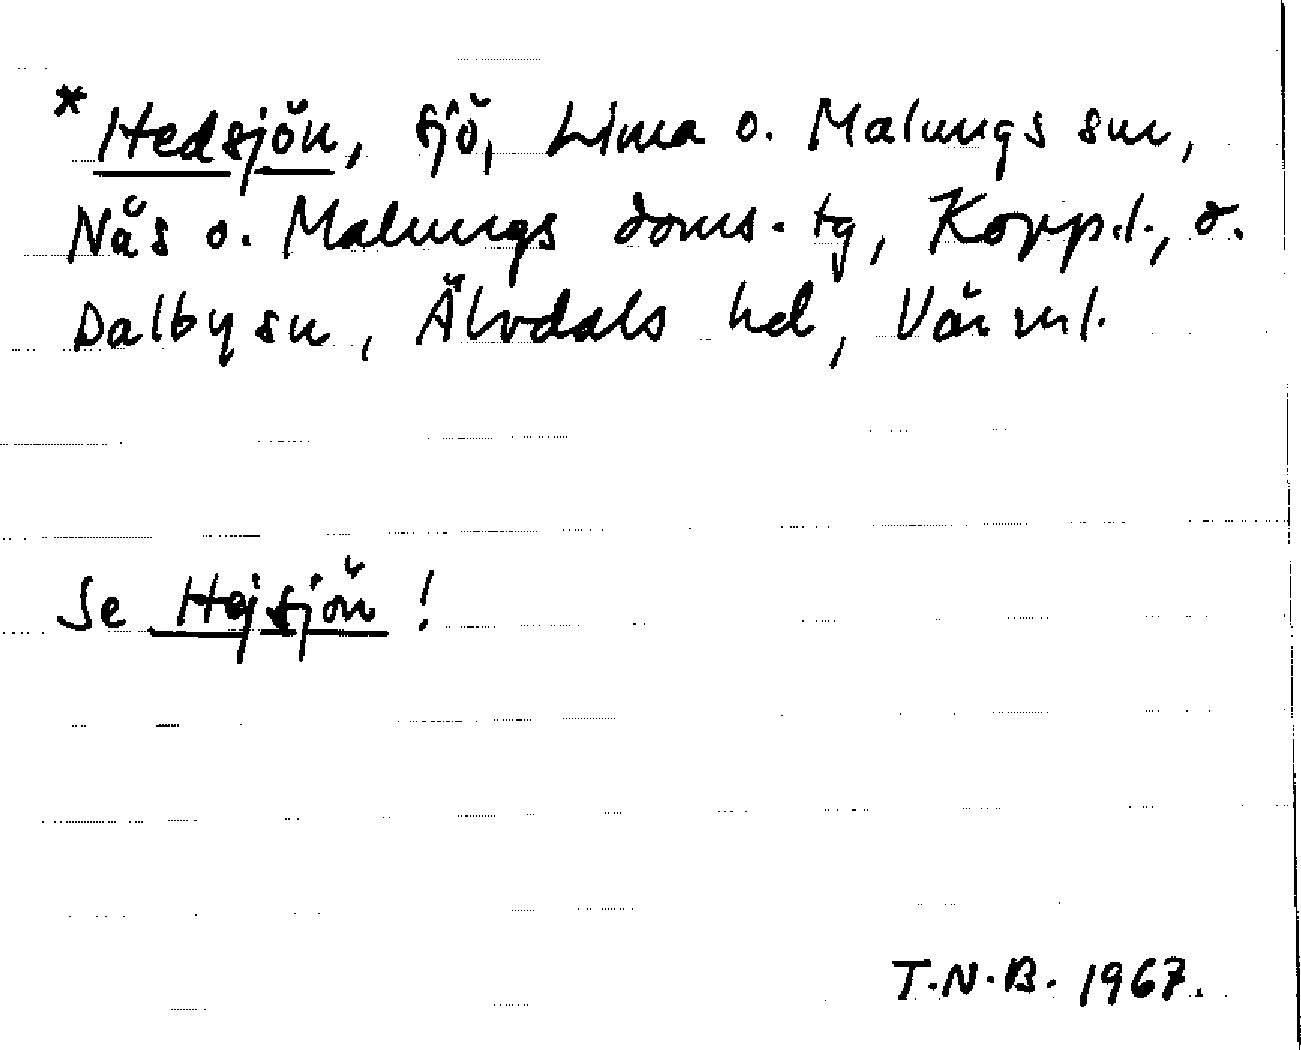 *Hedsjön, sjö, Lima o. Malungs snr,
Nås o. Malungs doms. tg, Kopp.l., o.
Dalby sn, Älvdals hd, Värml.
Se Hejsjön!
T.N.B. 1967.